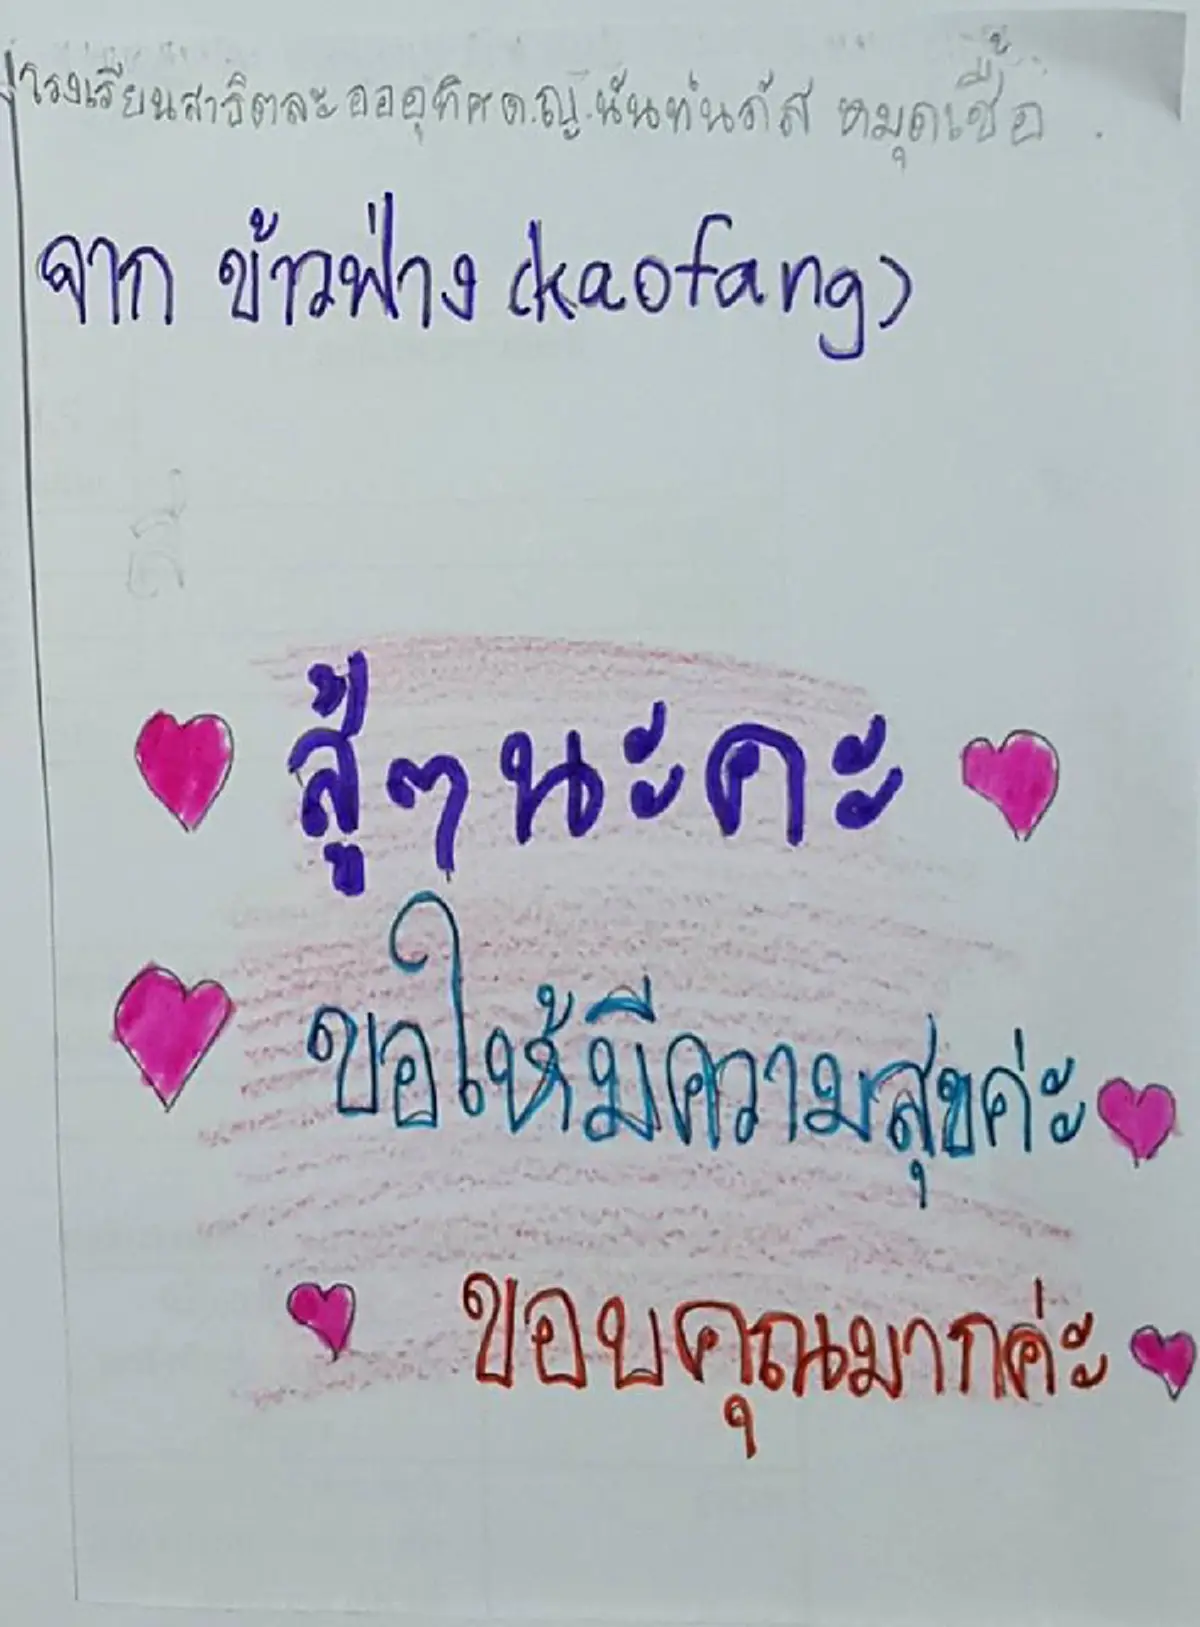 โรงเรียนสาธิตละอออุทิศ ด.ญ.นันท์นภัส หมุดเชื้อ
จาก ข้าวฟ่าง (kaofang)
สู้ๆ นะคะ
ขอให้มีความสุขค่ะ
ขอบคุณมากค่ะ